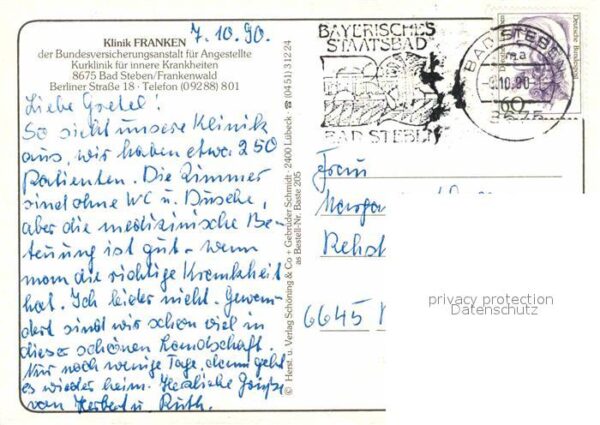 7.10.90.
Klinik FRANKEN
der Bundesversicherungsanstalt für Angestellte
Kurklinik für innere Krankheiten
8675 Bad Steben/Frankenwald
Berliner Straße 18 · Telefon (09288) 801
Liebe Gretel!
So sieht unsere Klinik
aus, wir haben etwa 250
Patienten. Die Zimmer
sind ohne WC u. Dusche,
aber die medizinische Be-
treuung ist gut - wenn
man die richtige Krankheit
hat. Ich leider nicht. Gewan-
dert sind wir schon viel in
dieser schönen Landschaft.
Nur noch wenige Tage, dann geht
es wieder heim. Herzliche Grüße
von Herbert u. Ruth.
© Herst. u. Verlag Schöning & Co + Gebrüder Schmidt · 2400 Lübeck · ☎ (0451) 31224
as Bestell-Nr. Baste 205
BAYERISCHES
STAATSBAD
BAD STEBEN
BAD STEBEN
ma
10.90
8675
Deutsche Bundespost
60
Frau
Rehst
6645
privacy protection
Datenschutz